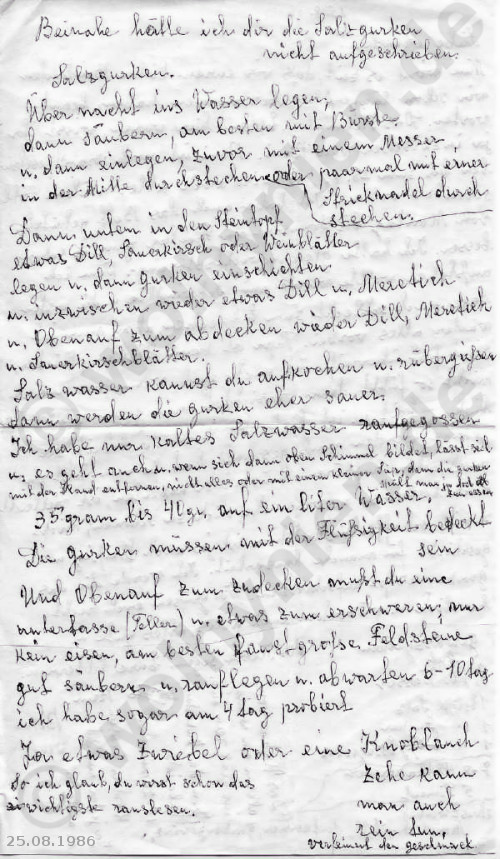 Beinahe hätte ich dir die Salzgurken
nicht aufgeschrieben.
Salzgurken.
Über nacht ins Wasser legen,
dann säubern, am besten mit Bürste
u. dann einlegen, zuvor mit einem Messer
in der Mitte durchstechen oder paarmal mit einer
Stricknadel durch
stechen.
Dann unten in den Steintopf
etwas Dill, Sauerkirsch oder Weinblätter
legen u. dann gurken einschichten.
u. inzwischen wieder etwas Dill u. Meretich
u. Obenauf zum abdecken wieder Dill, Meretich
u. Sauerkirschblätter.
Salz wasser kannst du aufkochen u. rübergießen
dann werden die gurken eher sauer.
Ich habe nur kaltes Salzwasser raufgegossen
u. es geht auch u. wenn sich dann oben Schimmel bildet, lässt sich
mit der Hand entfernen, nicht alles oder mit einem kleinen Sip, denn die gurken
35 gram bis 40 gr. auf ein liter Wasser.
Die gurken müssen mit der Flüßigkeit bedeckt
sein
Und Obenauf zum zudecken mußt du eine
unterfasse (Teller) u. etwas zum erschweren; nur
kein eisen, am besten faustgroße Feldsteine
gut säubern u. rauflegen u. abwarten 6-10 tag
ich habe sogar am 4 tag probiert
Ja etwas Zwiebel oder eine Knoblauch
Zehe kann
man auch
rein tun,
verfeinert den geschmack.
So ich glaub, du wirst schon das
wichtigste rauslesen.
25.08.1986